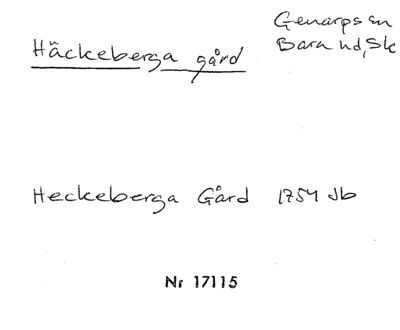 Häckeberga gård Genarps sn
Bara hd, Sk
Heckeberga Gård 1754 Jb
Nr 17115